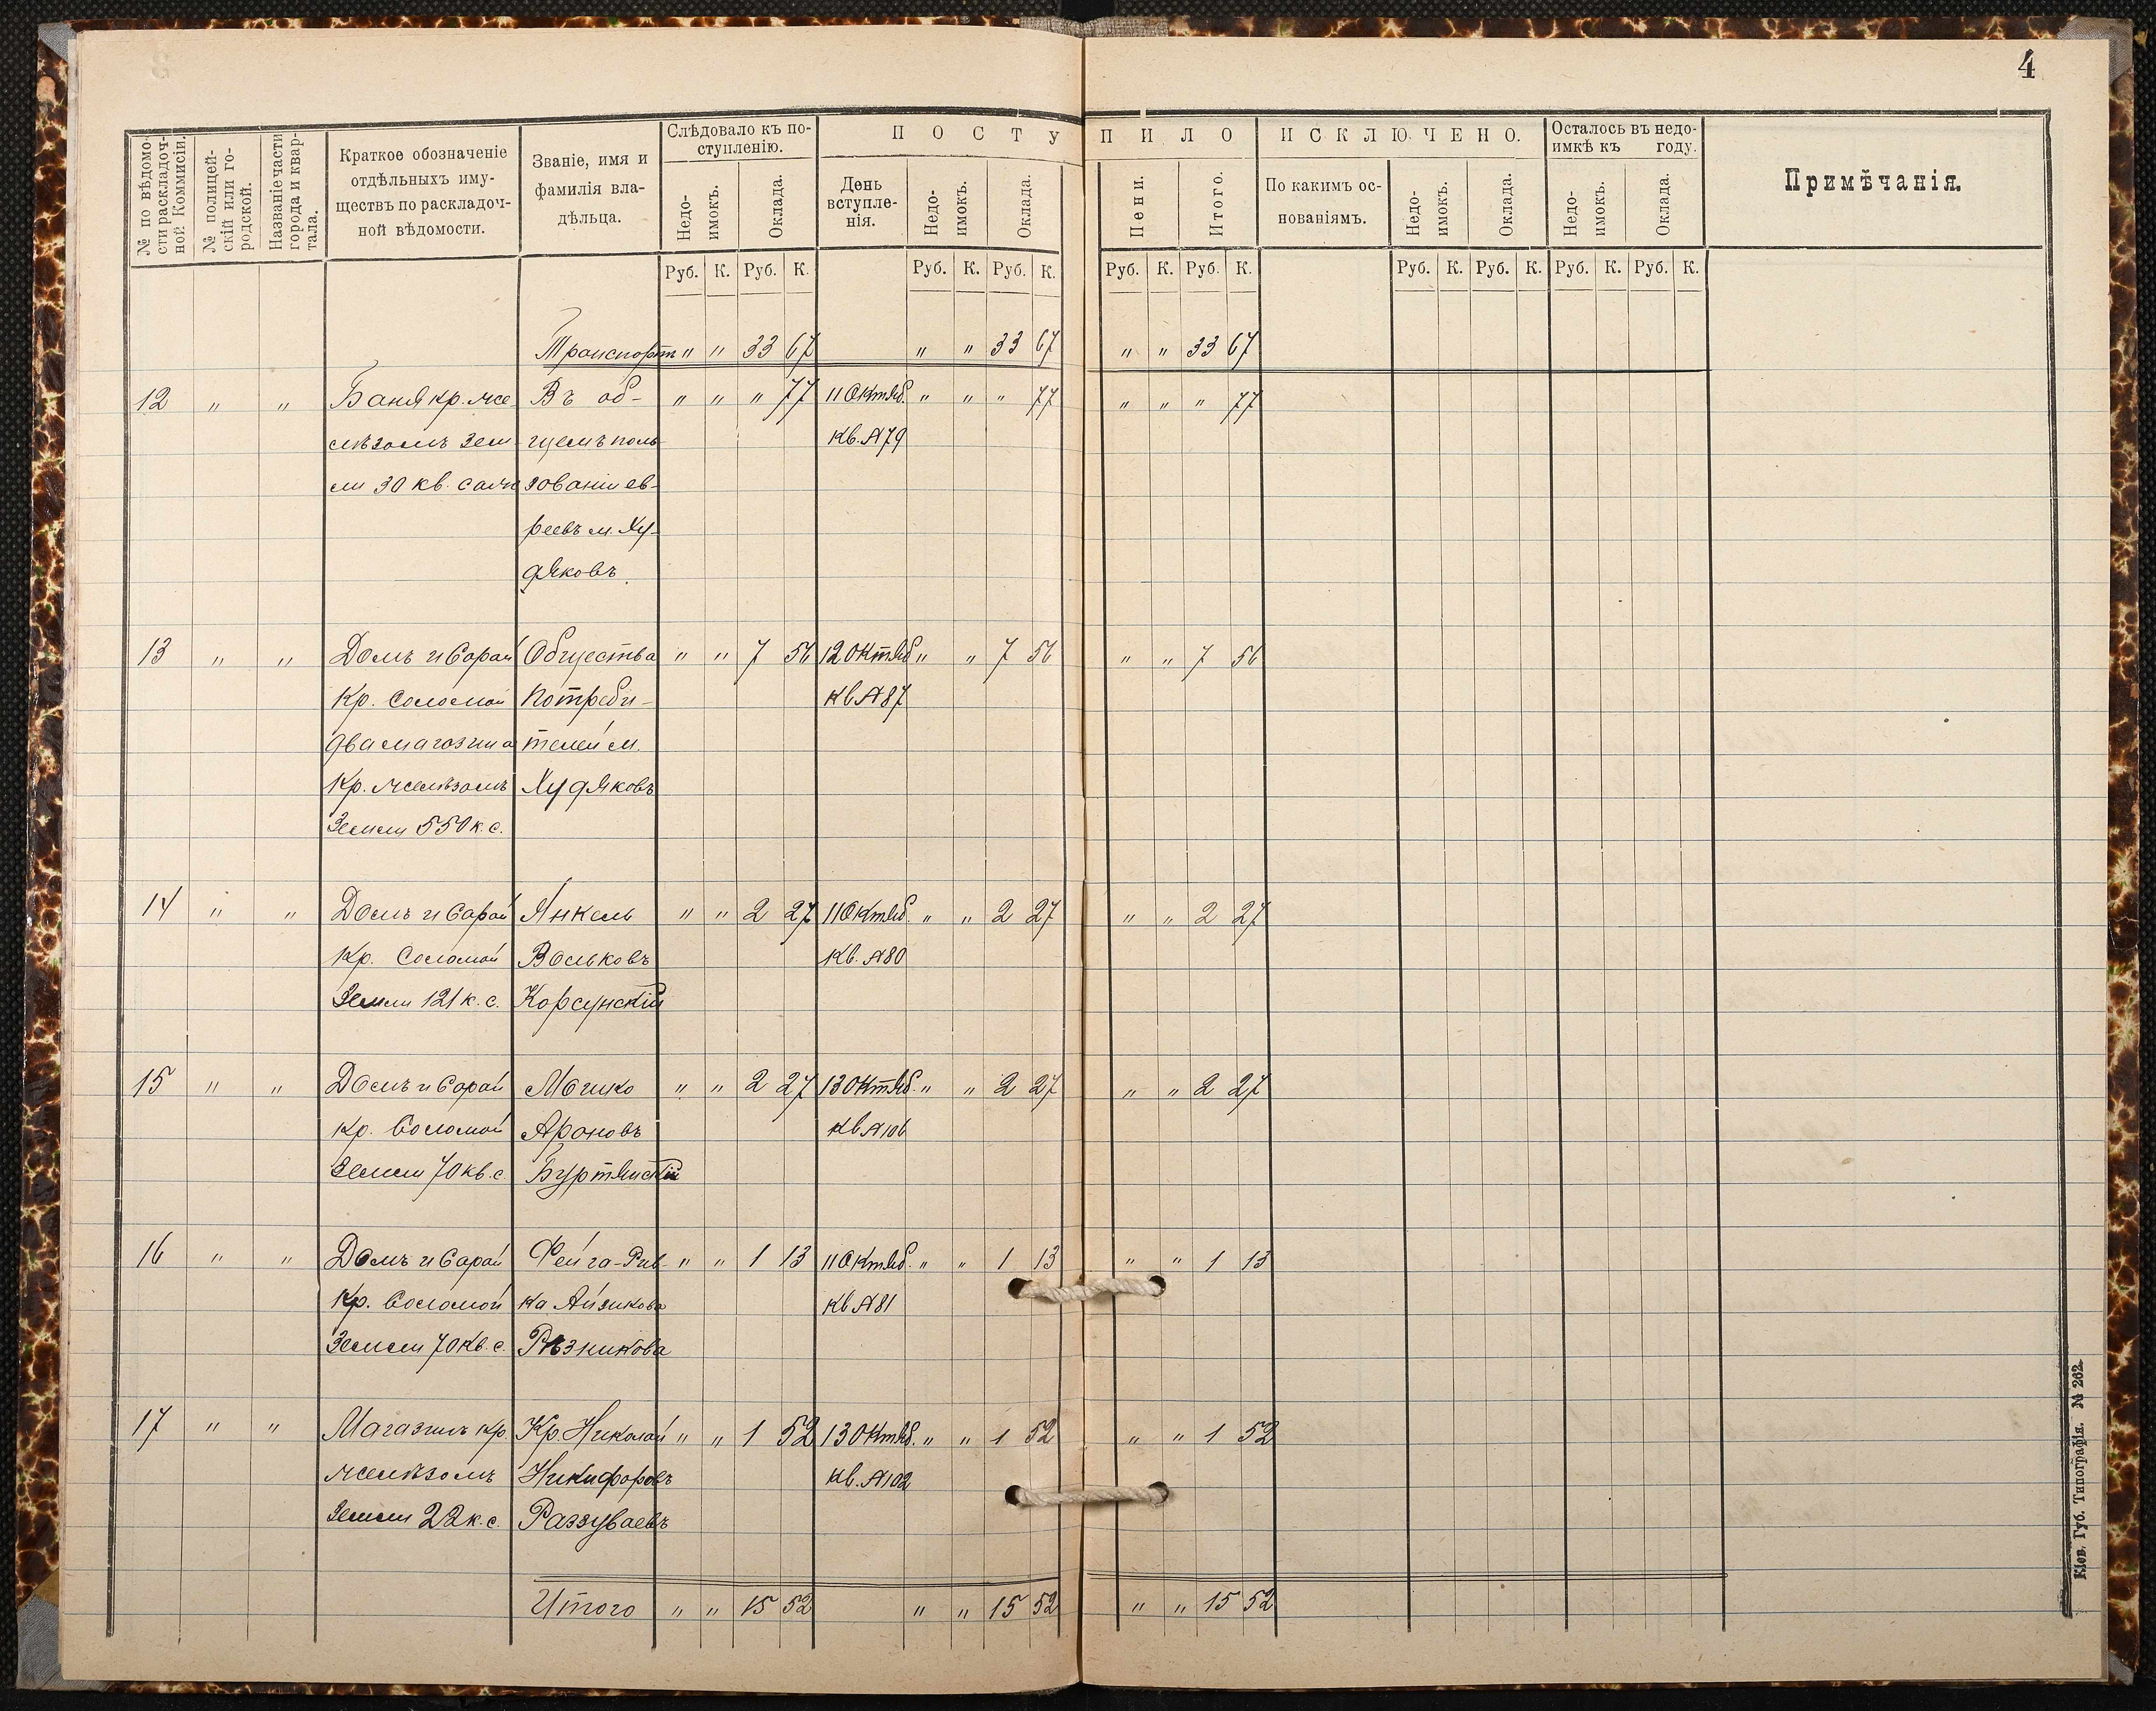 4
№ по вѣдомости раскладочной Коммисіи.
№ полицейскій или городской.
Названіе части города и квартала.
Краткое обозначеніе отдѣльныхъ имуществъ по раскладочной вѣдомости.
Званіе, имя и фамилія владѣльца.
Слѣдовало къ поступленію.
Недоимокъ. Оклада.
ПОСТУПИЛО
День вступленія. Недоимокъ. Оклада. Пени. Итого.
ИСКЛЮЧЕНО.
По какимъ основаніямъ. Недоимокъ. Оклада.
Осталось въ недоимкѣ къ году.
Недоимокъ. Оклада.
Примѣчанія.
Руб. К. Руб. К. Руб. К. Руб. К. Руб. К. Руб. К. Руб. К. Руб. К. Руб. К. Руб. К.
Транспортъ " " 33 67 " " 33 67 " " 33 67
12 " " Баня кр. же- Въ об- " " " 77 11 Октяб. " " " 77 " " " 77
лѣзомъ зем- щемъ поль- Кв. №79
ли 30 кв. саж зованіи ев-
реевъ м. Ху-
дяковъ.
13 " " Домъ и Сарай Общества " " 7 56 12 Октяб " " 7 56 " " 7 56
Кр. Соломой Потреби- кв №87
два магазина телей м.
Кр. желѣзомъ Худяковъ
Земли 550 к. с.
14 " " Домъ и Сарай Янкель " " 2 27 11 Октяб. " " 2 27 " " 2 27
Кр. Соломой Вольковъ Кв. №80
Земли 121 к. с. Корсунскій
15 " " Домъ и Сарай Мошко " " 2 27 13 Октяб. " " 2 27 " " 2 27
Кр. Соломой Ароновъ кв №106
Земли 70 кв. с. Буртянскій
16 " " Домъ и Сарай Фейга-Рив- " " 1 13 11 Октяб. " " 1 13 " " 1 13
Кр. Соломой ка Айзикова кв №81
Земли 70 кв. с. Рѣзникова
17 " " Магазинъ кр. Кр. Николай " " 1 52 13 Октяб. " " 1 52 " " 1 52
желѣзомъ Никифоровъ кв. №102
Земли 22 к. с. Раззуваевъ
Итого " " 15 52 " " 15 52 " " 15 52
Кіев. Губ. Типографія. № 262.